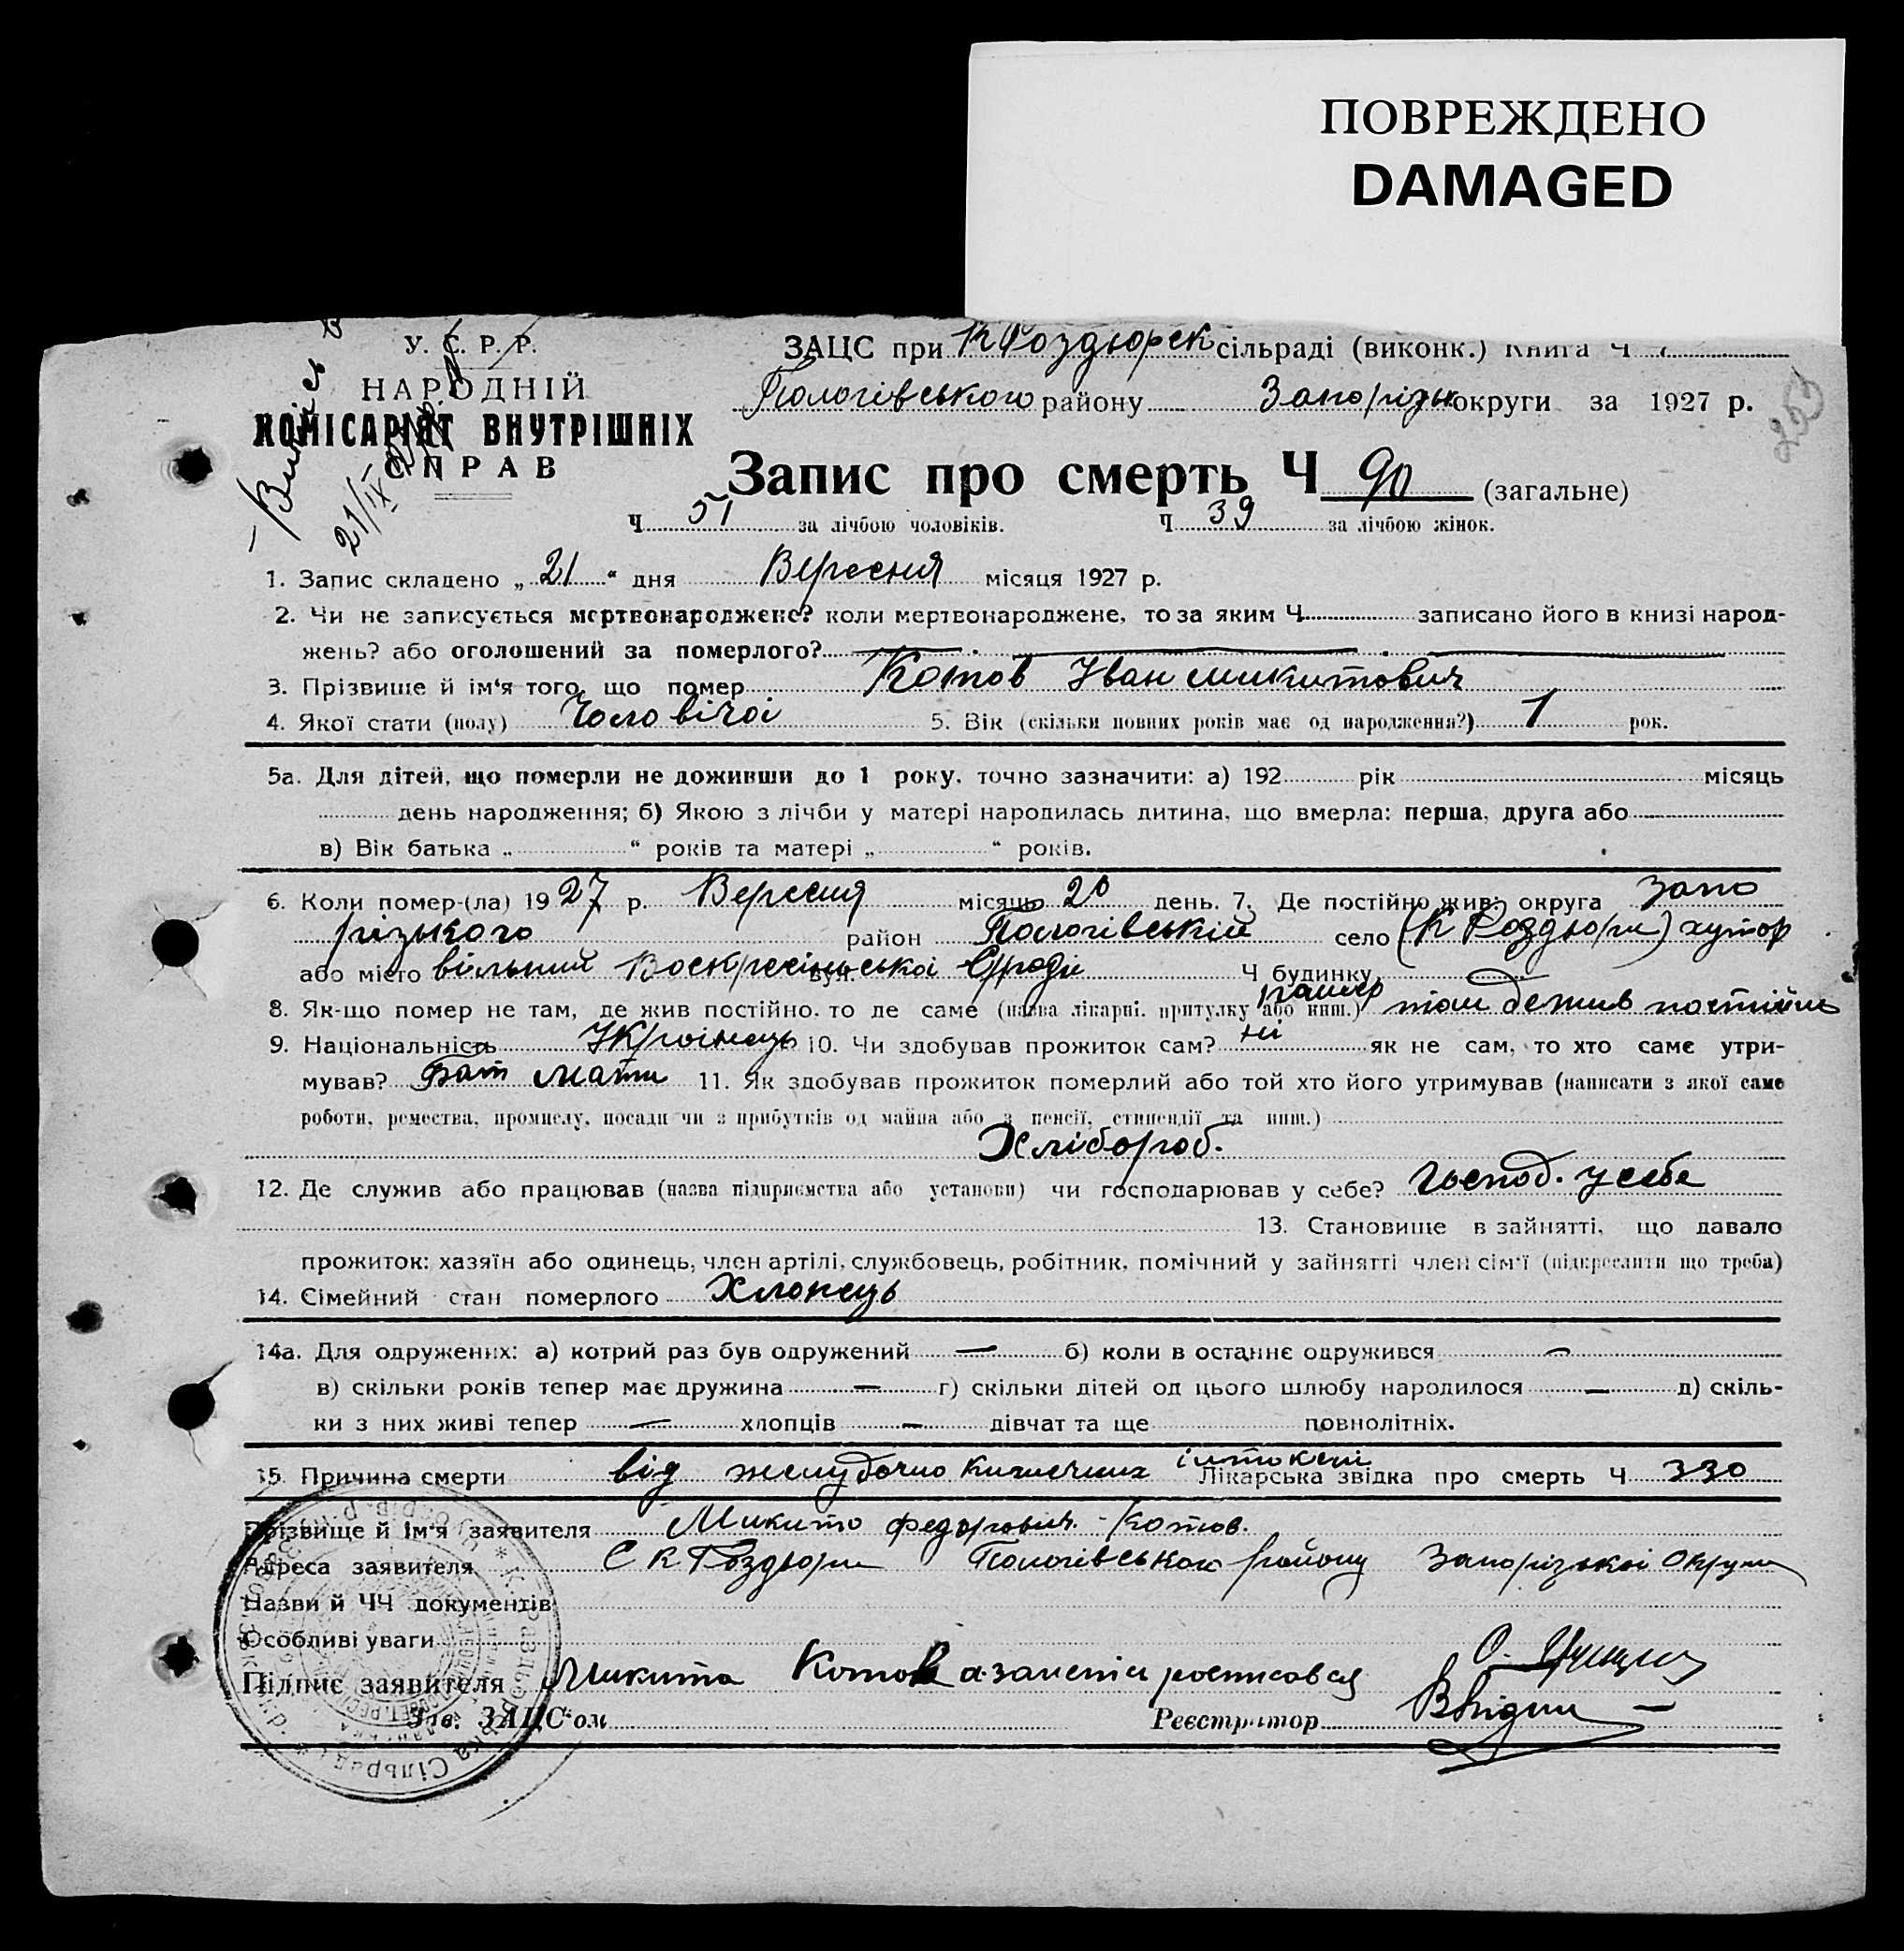 ПОВРЕЖДЕНО
DAMAGED
У. С. Р. Р.
НАРОДНІЙ
КОМІСАРІЯТ ВНУТРІШНІХ
СПРАВ
21/IX
ЗАЦС при К Роздорск сільраді (виконк.) Книга Ч
Пологівського району Запорізьк округи за 1927 р.
253
Запис про смерть Ч 90 (загальне)
Ч 51 за лічбою чоловіків. Ч 39 за лічбою жінок.
1. Запис складено „ 21 “ дня Вересня місяця 1927 р.
2. Чи не записується мертвонароджене? коли мертвонароджене, то за яким Ч записано його в книзі народ-
жень? або оголошений за померлого?
3. Прізвище й ім'я того, що помер Котов Іван Микитович
4. Якої стати (полу) Чоловічої 5. Вік (скільки повних років має од народження?) 1 рок.
5а. Для дітей, що померли не доживши до 1 року, точно зазначити: а) 192 рік місяць
день народження; б) Якою з лічби у матері народилась дитина, що вмерла: перша, друга або
в) Вік батька „ “ років та матері „ “ років.
6. Коли помер-(ла) 1927 р. Вересня місяць 20 день. 7. Де постійно жив: округа Запо
різького район Пологівський село (К Роздори) хутор
або місто вільний Воскресінської вул. Ч будинку
8. Як-що помер не там, де жив постійно, то де саме (назва лікарні, притулку або инш.) помер там де жив постійно
9. Національність Україноць 10. Чи здобував прожиток сам? ні як не сам, то хто саме утри-
мував? Бат Мати 11. Як здобував прожиток померлий або той хто його утримував (написати з якої саме
роботи, ремества, промислу, посади чи з прибутків од майна або з пенсії, стипендії та инш.)
Хлібороб.
12. Де служив або працював (назва підприємства або установи) чи господарював у себе? Господ. у себе
13. Становище в зайнятті, що давало
прожиток: хазяїн або одинець, член артілі, службовець, робітник, помічний у зайнятті член сім'ї (підкреслити що треба)
14. Сімейний стан померлого Хлопець
14а. Для одружених: а) котрий раз був одружений — б) коли в останнє одружився —
в) скільки років тепер має дружина — г) скільки дітей од цього шлюбу народилося — д) скіль-
ки з них живі тепер — хлопців — дівчат та ще повнолітніх.
15. Причина смерти від желудочно кишечних Лікарська звідка про смерть Ч 330
Прізвище й ім'я заявителя Микито Федорович Котов.
Адреса заявителя С К Роздори Пологівського району Запорізької Округи
Назви й ЧЧ документів
Особливі уваги
Підпис заявителя Микита Котов
Зав. ЗАЦС'ом Реєстратор